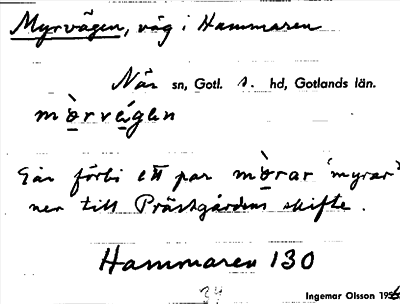 Myrvägen, väg i Hammaren
När sn, Gotl. s. hd, Gotlands län.
mòrvégen
Går förbi ett par mòrar 'myrar'
ner till Prästgårdens skifte.
Hammaren 130
34
Ingemar Olsson 195